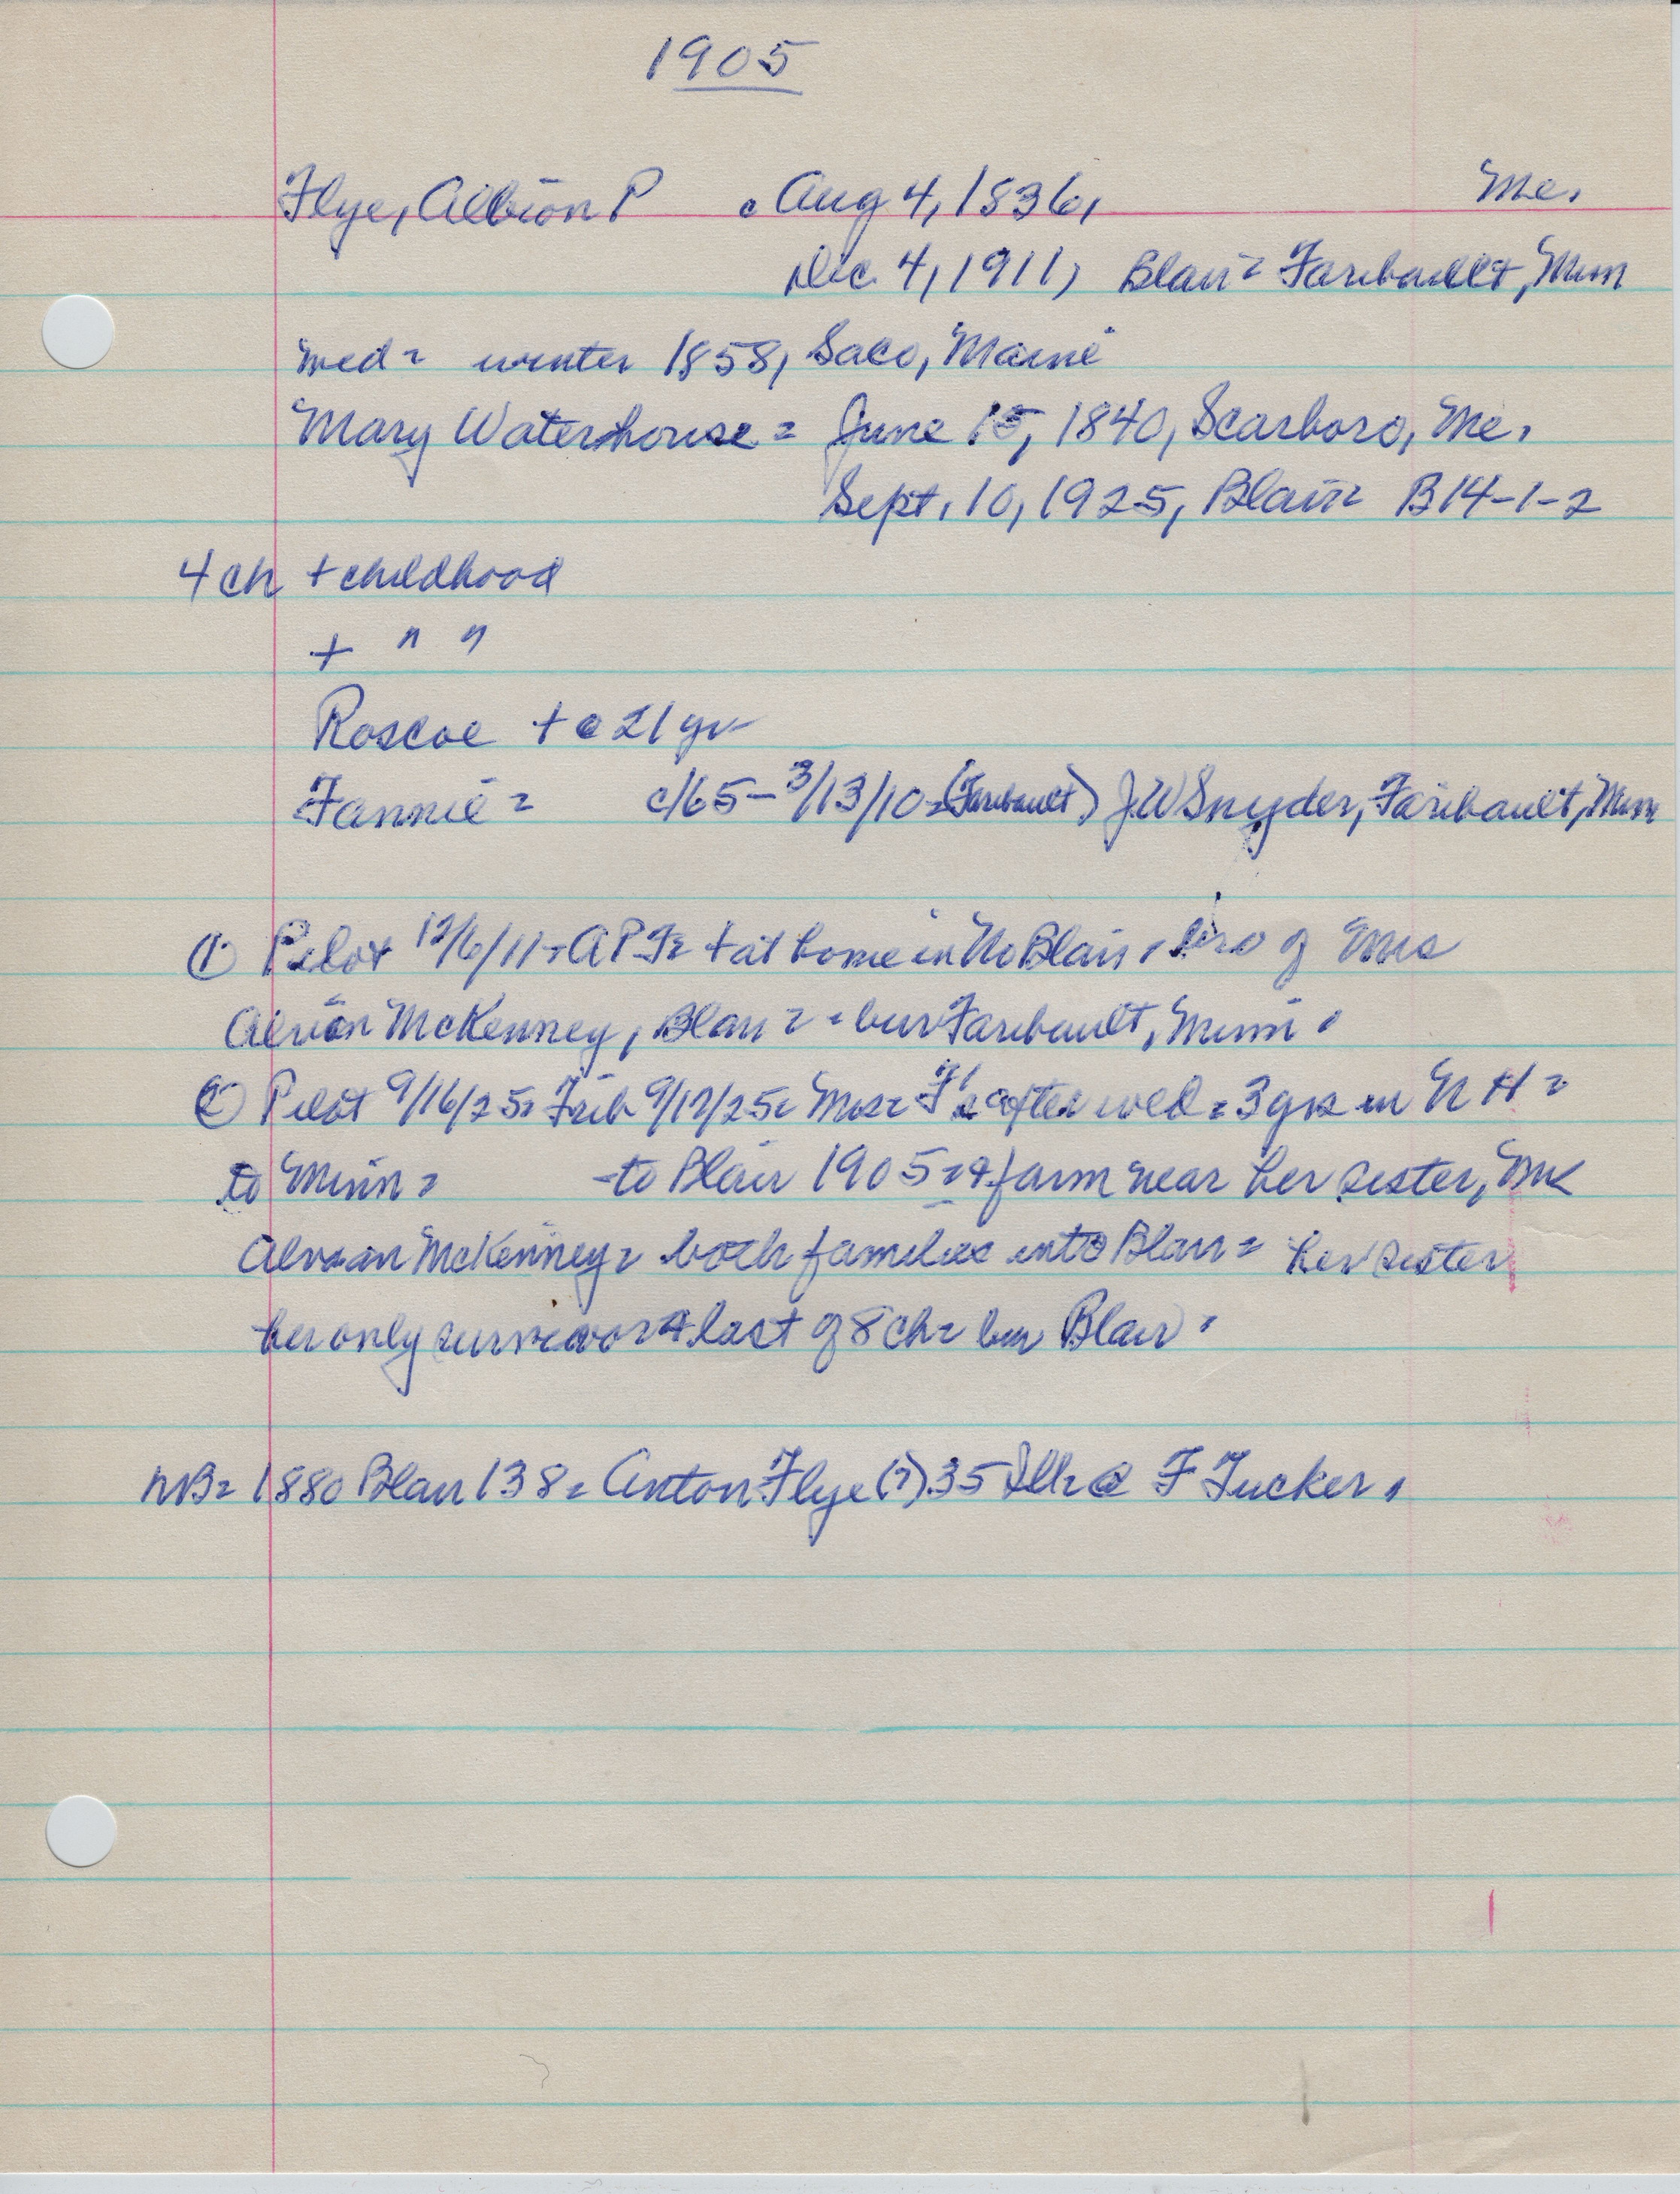 1905
Flye, Albion P c Aug 4, 1836, Me.
Dec. 4, 1911, Blair = Faribault, Minn
wed = winter 1858, Saco, Maine
Mary Waterhouse = June 15, 1840, Scarboro, Me.
Sept. 10, 1925, Blair = B14-1-2
4 ch + childhood
+ " "
Roscoe + c 21 yr
Fannie = c/65 - 3/13/10 = (Faribault) J.W Snyder, Faribault, Minn
① Pilot 12/6/11 = A P F = + at home in No Blair, bro of Mrs
Alvian McKenney, Blair = bur Faribault, Minn.
② Pilot 9/16/25 = Trib 9/17/25 = Mrs = F's after wed = 3 yrs in N H =
to Minn = - to Blair 1905 = + farm near her sister, Mrs
Alvaan McKenney = both families into Blair = her sister
her only survivor + last of 8 ch = bur Blair.
NB = 1880 Blair 138 = Anton Flye (?) 35 Ill = @ F Tucker.